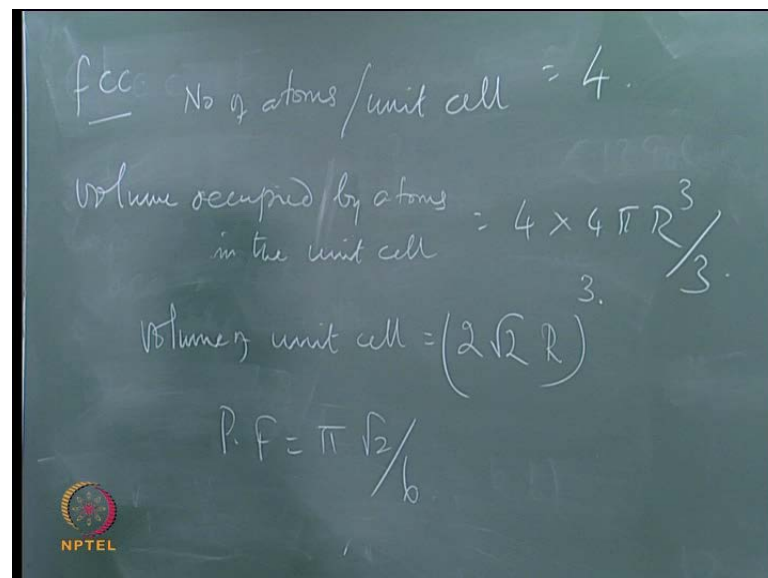 fcc No of atoms/unit cell = 4.
volume occupied by atoms
in the unit cell = 4 × 4 π R³/3.
Volume of unit cell = (2√2 R)³.
P.F = π √2/6
NPTEL